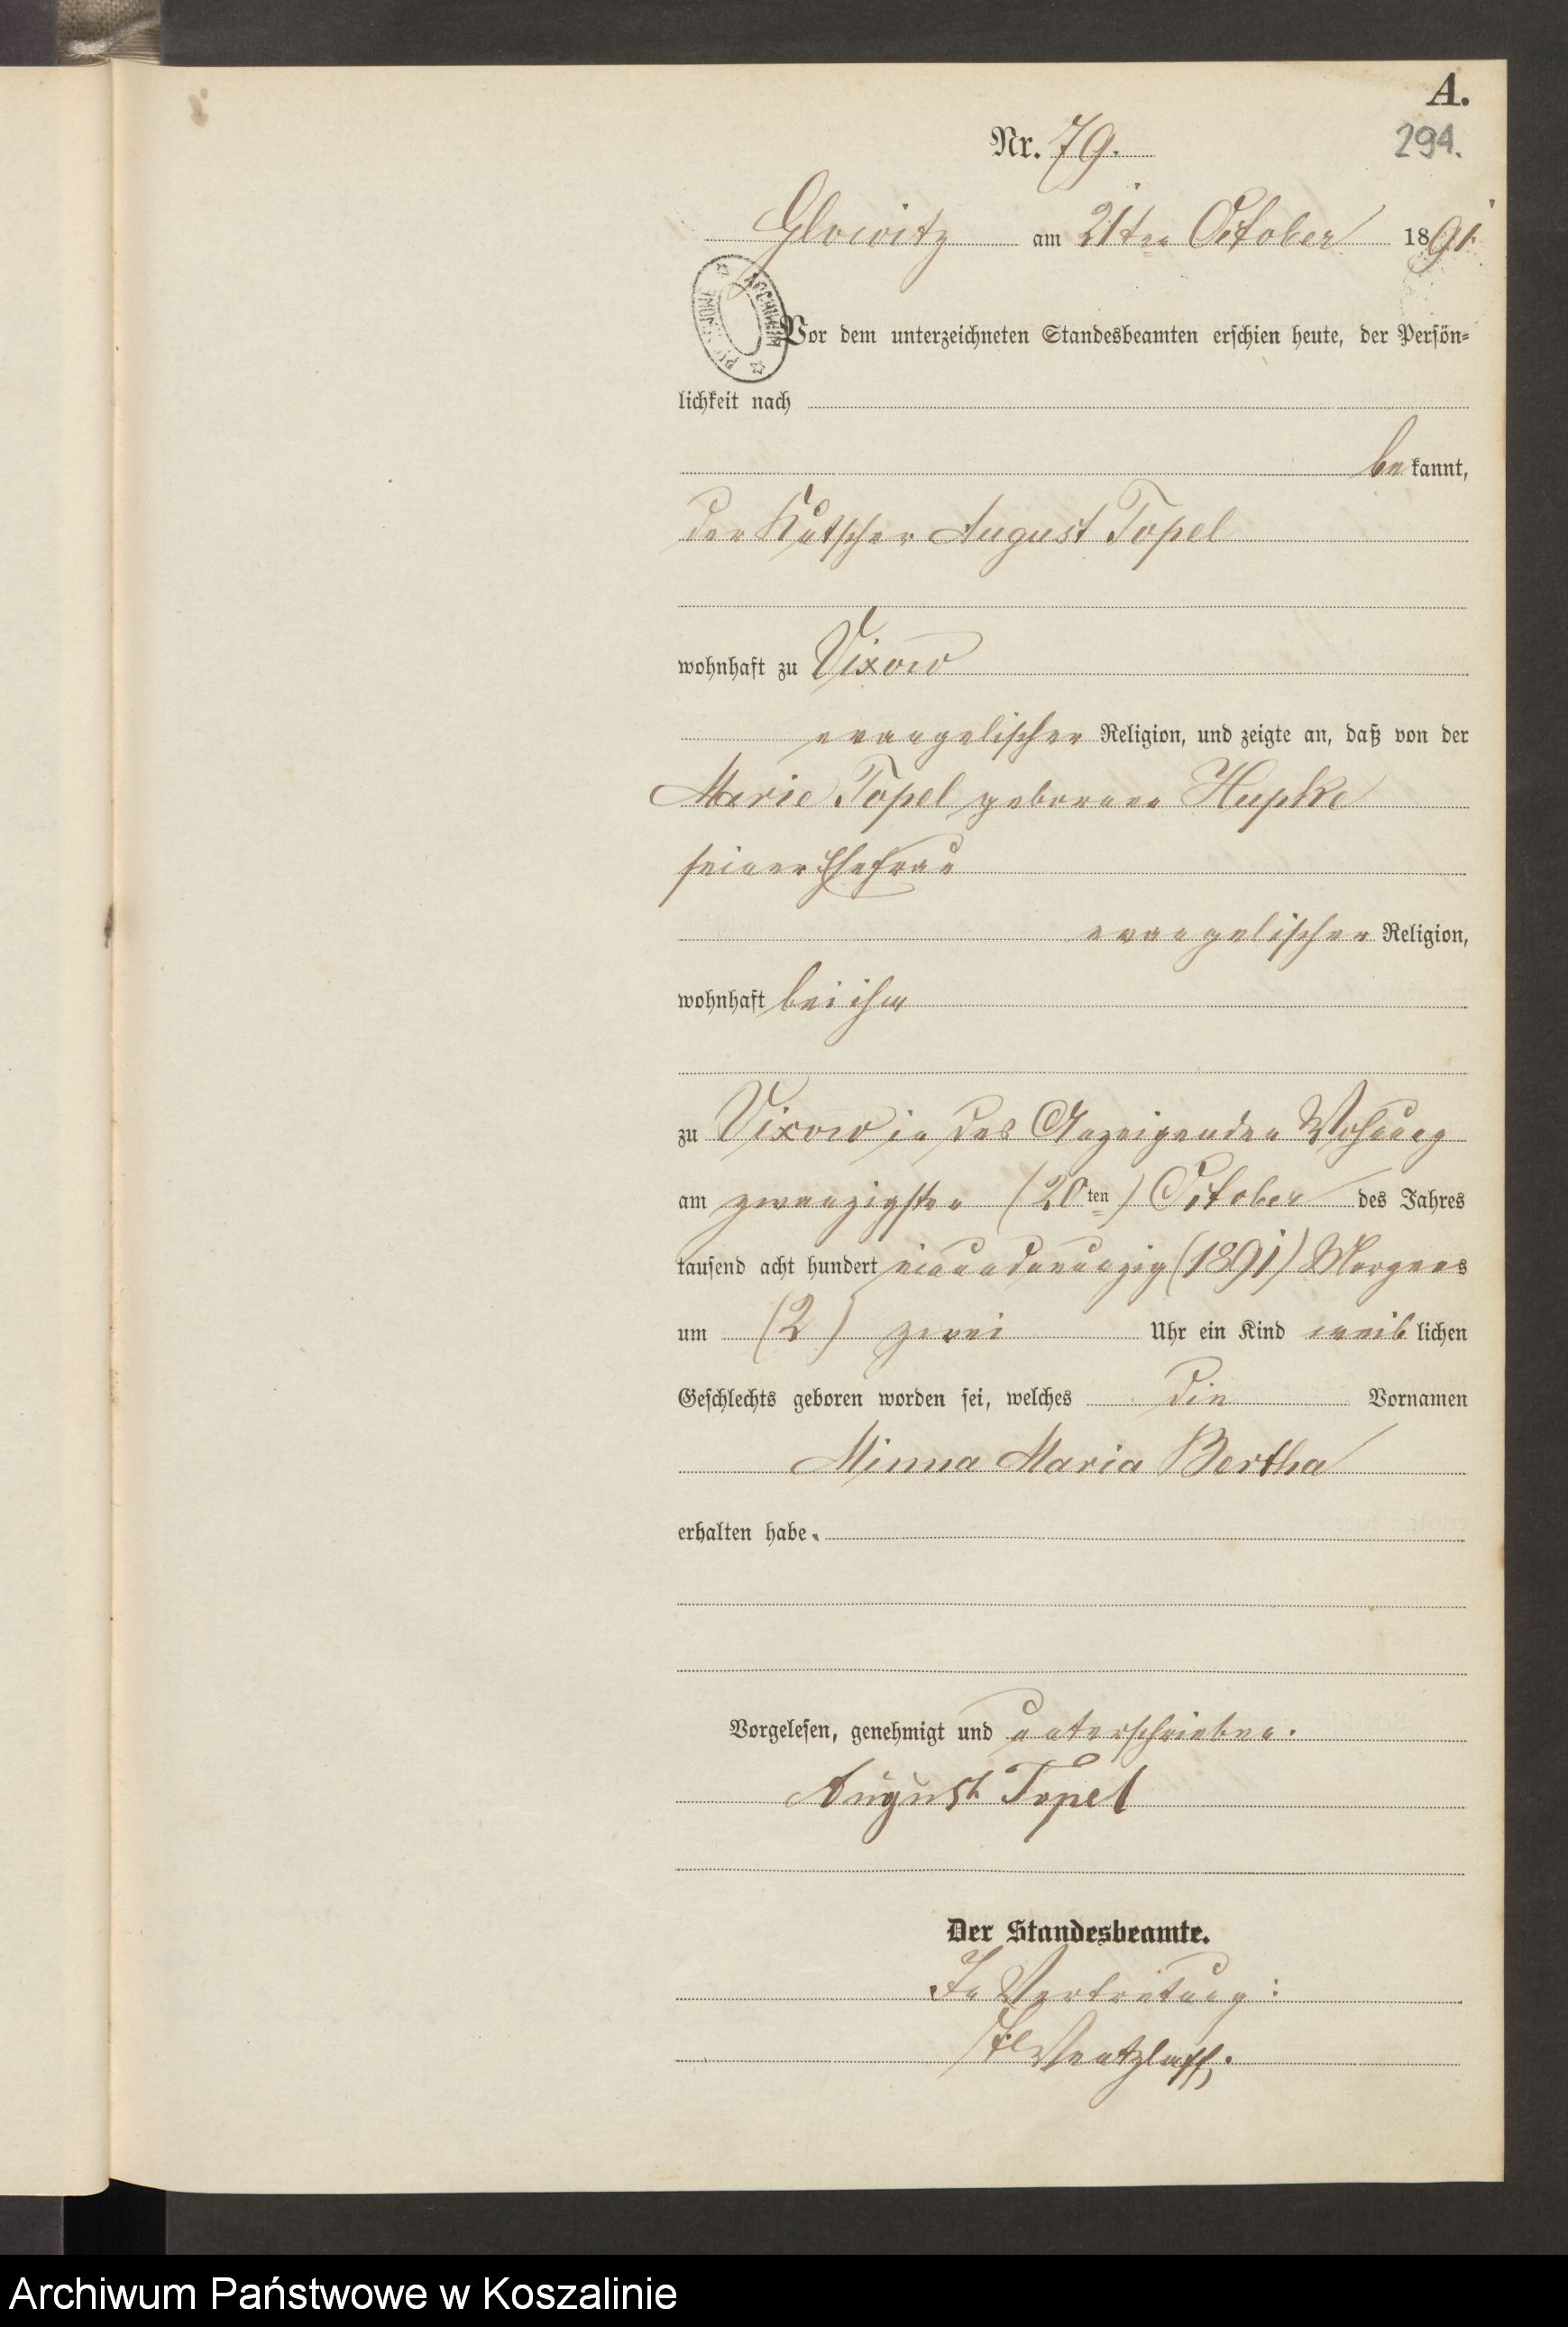 A.
Nr. 79.
294.
Glowitz am 21ten October 1891.
Vor dem unterzeichneten Standesbeamten erschien heute, der Persön-
lichkeit nach
bekannt,
der Kutscher August Topel
wohnhaft zu Vixow
evangelischer Religion, und zeigte an, daß von der
Marie Topel geborenen Hupke
seiner Ehefrau
evangelischer Religion,
wohnhaft bei ihm
zu Vixow in des Anzeigenden Wohnung
am zwanzigsten (20ten) October des Jahres
tausend acht hundert einundneunzig (1891) Morgens
um (2) zwei Uhr ein Kind weiblichen
Geschlechts geboren worden sei, welches die Vornamen
Minna Maria Bertha
erhalten habe.
Vorgelesen, genehmigt und unterschrieben.
August Topel
Der Standesbeamte.
In Vertretung:
Ventzlaff.
Archiwum Państwowe w Koszalinie